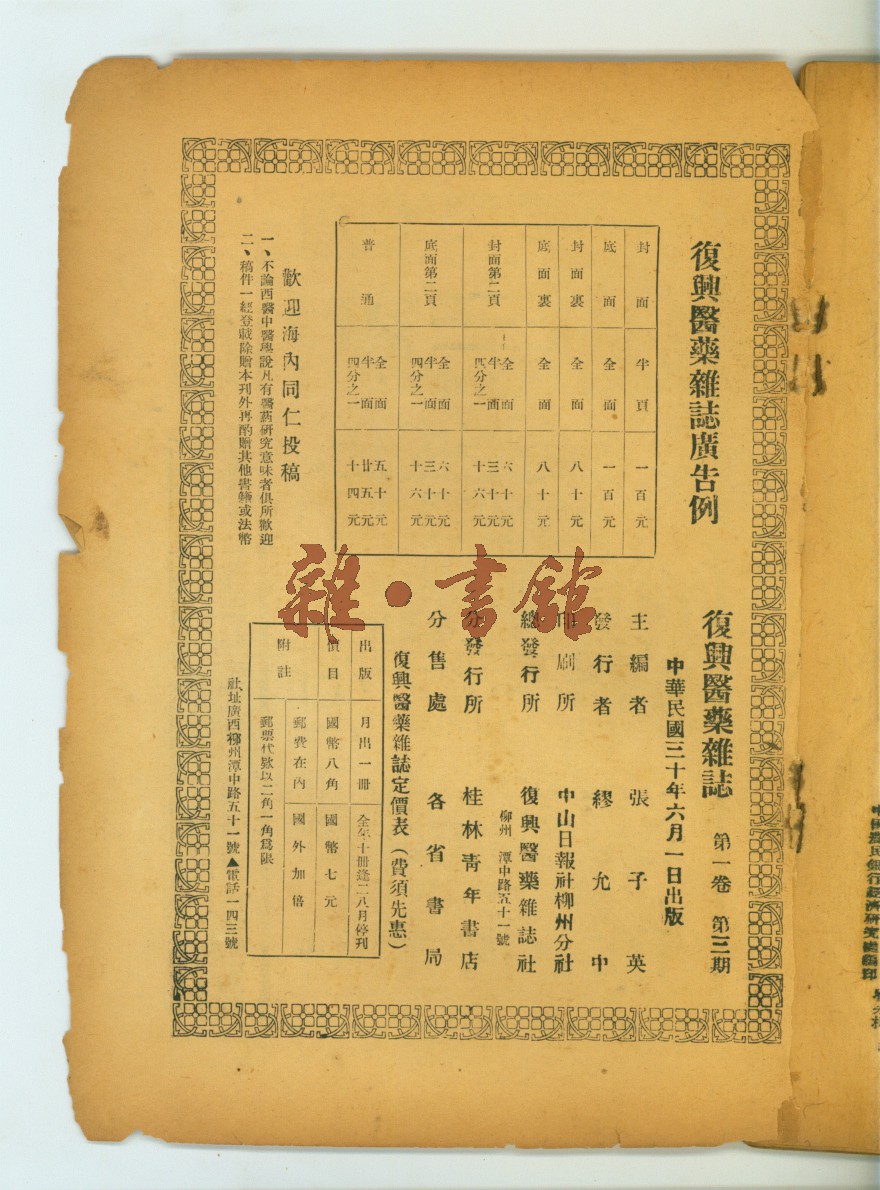 復興醫藥雜誌廣告例
封面 半頁 一百元
底面 全面 一百元
封面裏 全面 八十元
底面裏 全面 八十元
封面第二頁 全面 六十元
半面 三十元
四分之一 十六元
底面第二頁 全面 六十元
半面 三十元
四分之一 十六元
普通 全面 五十元
半面 廿五元
四分之一 十四元
歡迎海內同仁投稿
一、不論西醫中醫學說凡有醫藥研究意味者俱所歡迎
二、稿件一經登載除贈本刊外再酌贈其他書籍或法幣
復興醫藥雜誌 第一卷 第三期
中華民國三十年六月一日出版
主編者 張子英
發行者 繆允中
印刷所 中山日報社柳州分社
總發行所 復興醫藥雜誌社
柳州 潭中路五十一號
分發行所 桂林青年書店
分售處 各省書局
復興醫藥雜誌定價表（費須先惠）
出版 月出一冊 全年十冊逢二八月停刊
價目 國幣八角 國幣七元
附註 郵費在內 國外加倍
郵票代欵以二角一角爲限
社址廣西柳州潭中路五十一號▲電話一四三號
雜·書館